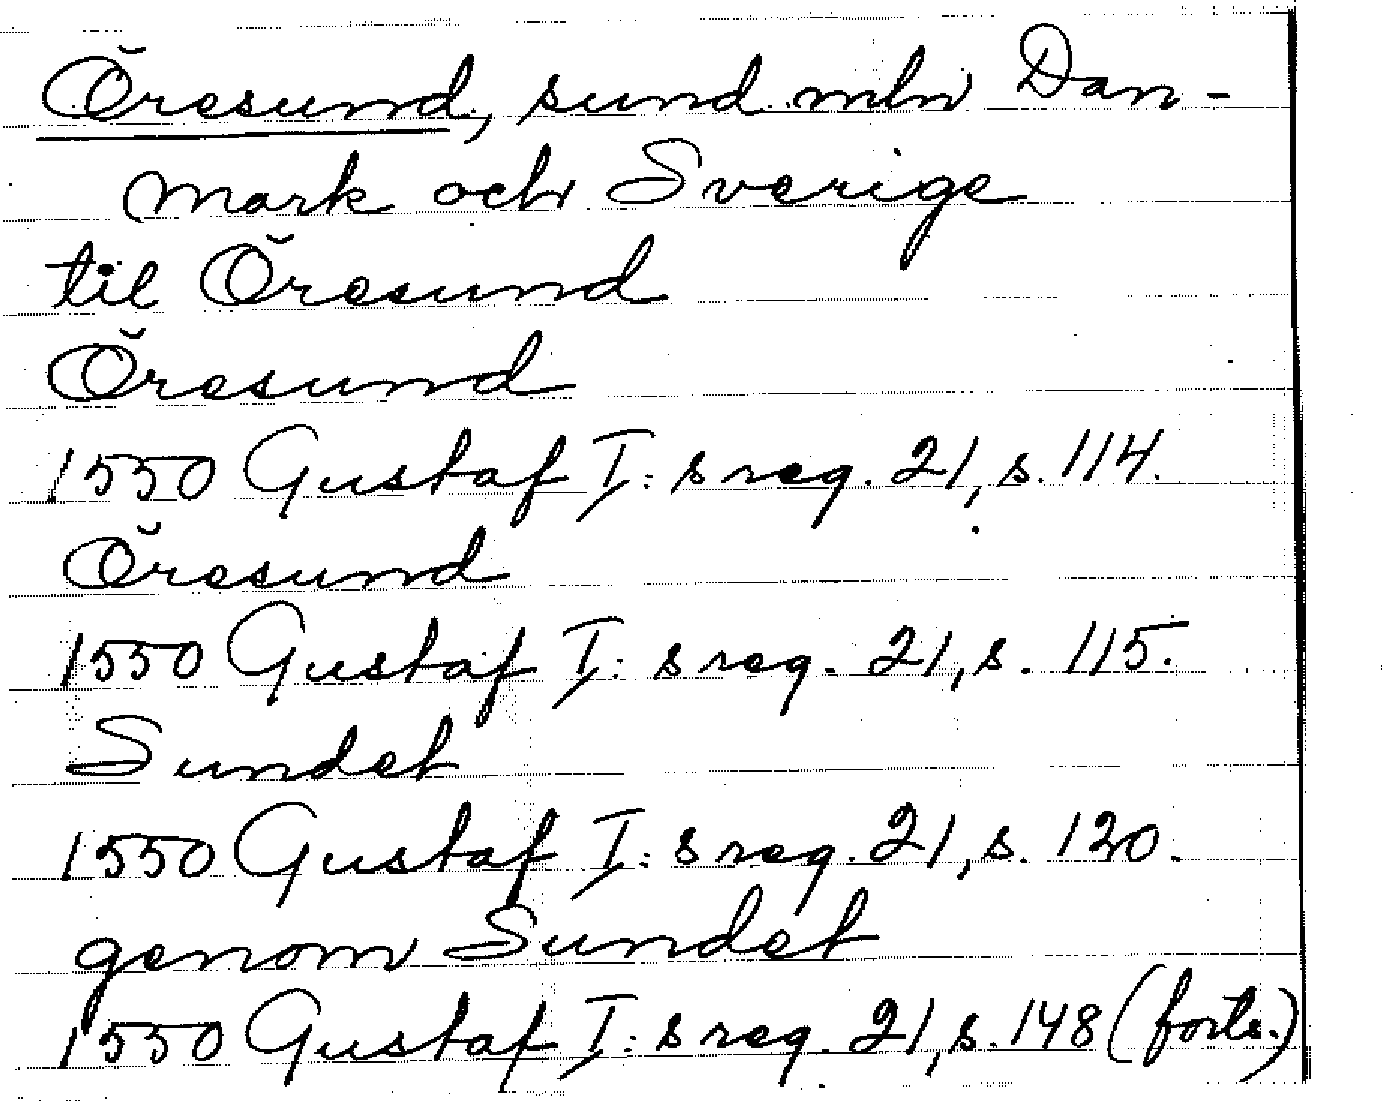 Öresund, sund mln Dan-
mark och Sverige
til Öresund
Öresund
1550 Gustaf I:s reg. 21, s. 114.
Öresund
1550 Gustaf I:s reg. 21, s. 115.
Sundet
1550 Gustaf I:s reg. 21, s. 120.
genom Sundet
1550 Gustaf I:s reg. 21, s. 148 (forts.)